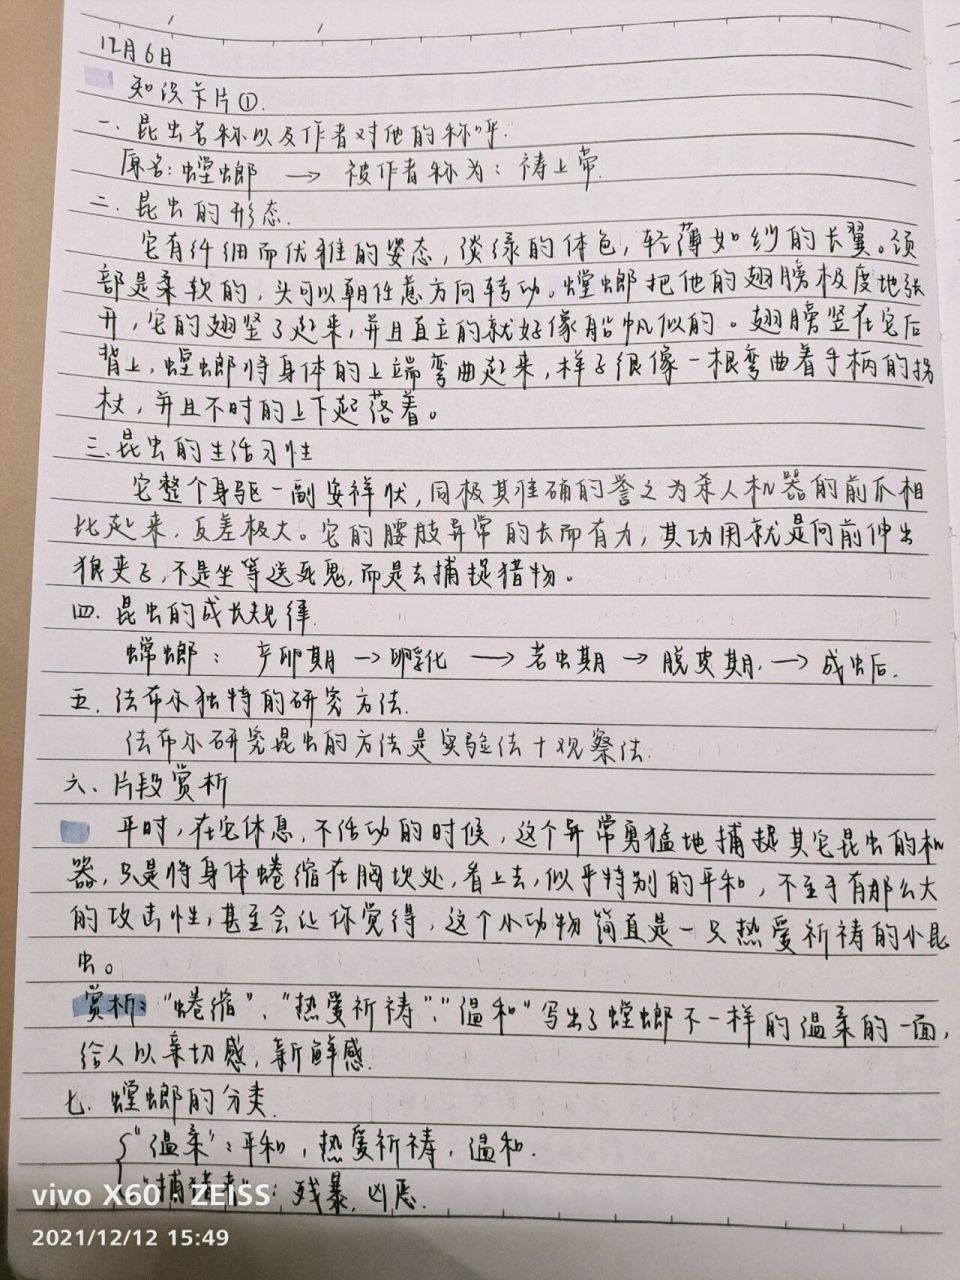 12月6日
知识卡片①.
一.昆虫名称以及作者对他的称呼.
原名:螳螂 → 被作者称为:祷上帝.
二.昆虫的形态.
它有纤细而优雅的姿态,淡绿的体色,轻薄如纱的长翼。颈
部是柔软的,头可以朝任意方向转动。螳螂把他的翅膀极度地张
开,它的翅竖了起来,并且直立的就好像船帆似的。翅膀竖在它后
背上,螳螂将身体的上端弯曲起来,样子很像一根弯曲着手柄的拐
杖,并且不时的上下起落着。
三.昆虫的生活习性
它整个身驱一副安祥状,同极其准确的誉之为杀人机器的前爪相
比起来,反差极大。它的腰肢异常的长而有力,其功用就是向前伸出
狼夹子,不是坐等送死鬼,而是去捕捉猎物。
四.昆虫的成长规律.
螳螂: 产卵期→孵化→若虫期→脱皮期.→成虫后.
五.法布尔独特的研究方法.
法布尔研究昆虫的方法是实验法+观察法.
六、片段赏析
平时,在它休息,不活动的时候,这个异常勇猛地捕捉其它昆虫的机
器,只是将身体蜷缩在胸坎处,看上去,似乎特别的平和,不至于有那么大
的攻击性,甚至会让你觉得,这个小动物简直是一只热爱祈祷的小昆
虫。
赏析:"蜷缩"、"热爱祈祷"、"温和"写出了螳螂不一样的温柔的一面,
给人以亲切感,新鲜感.
七.螳螂的分类.
{"温柔":平和,热爱祈祷,温和.
"捕猎者":残暴,凶恶.
vivo X60 · ZEISS
2021/12/12 15:49